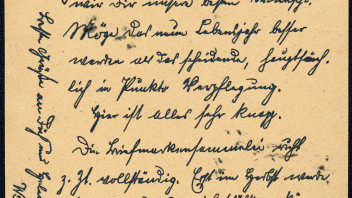 wir Dir unsere besten
Möge das neue Lebensjahr besser
werden als das scheidende, hauptsäch-
lich in Punkto Verpflegung.
Hier ist alles sehr knapp.
Die Briefmarkensammelei ruht
z. Zt. vollständig. Erst im Herbst werde
Beste Grüße an Dich und